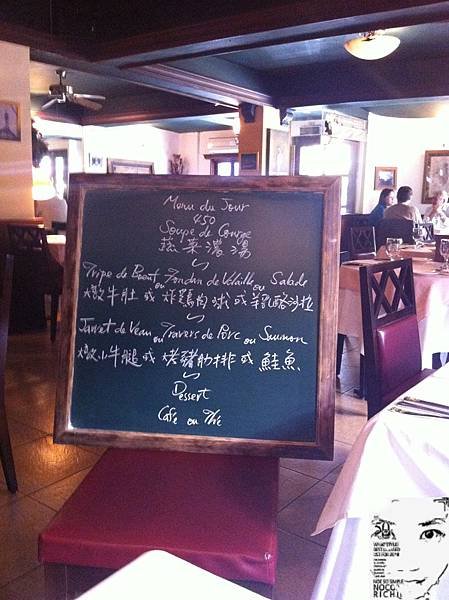 Menu du Jour
450
Soupe de Courge
蔬菜濃湯
Tripe de Boeuf ou Fondan de Volaille ou Salade
燉牛肚 或 炸鷄肉球 或 羊乳酪沙拉
Jarret de Veau ou Travers de Porc ou Saumon
燉小牛腿 或 烤豬肋排 或 鮭魚
Dessert
Cafe ou Thé
50
NOCO
RICH